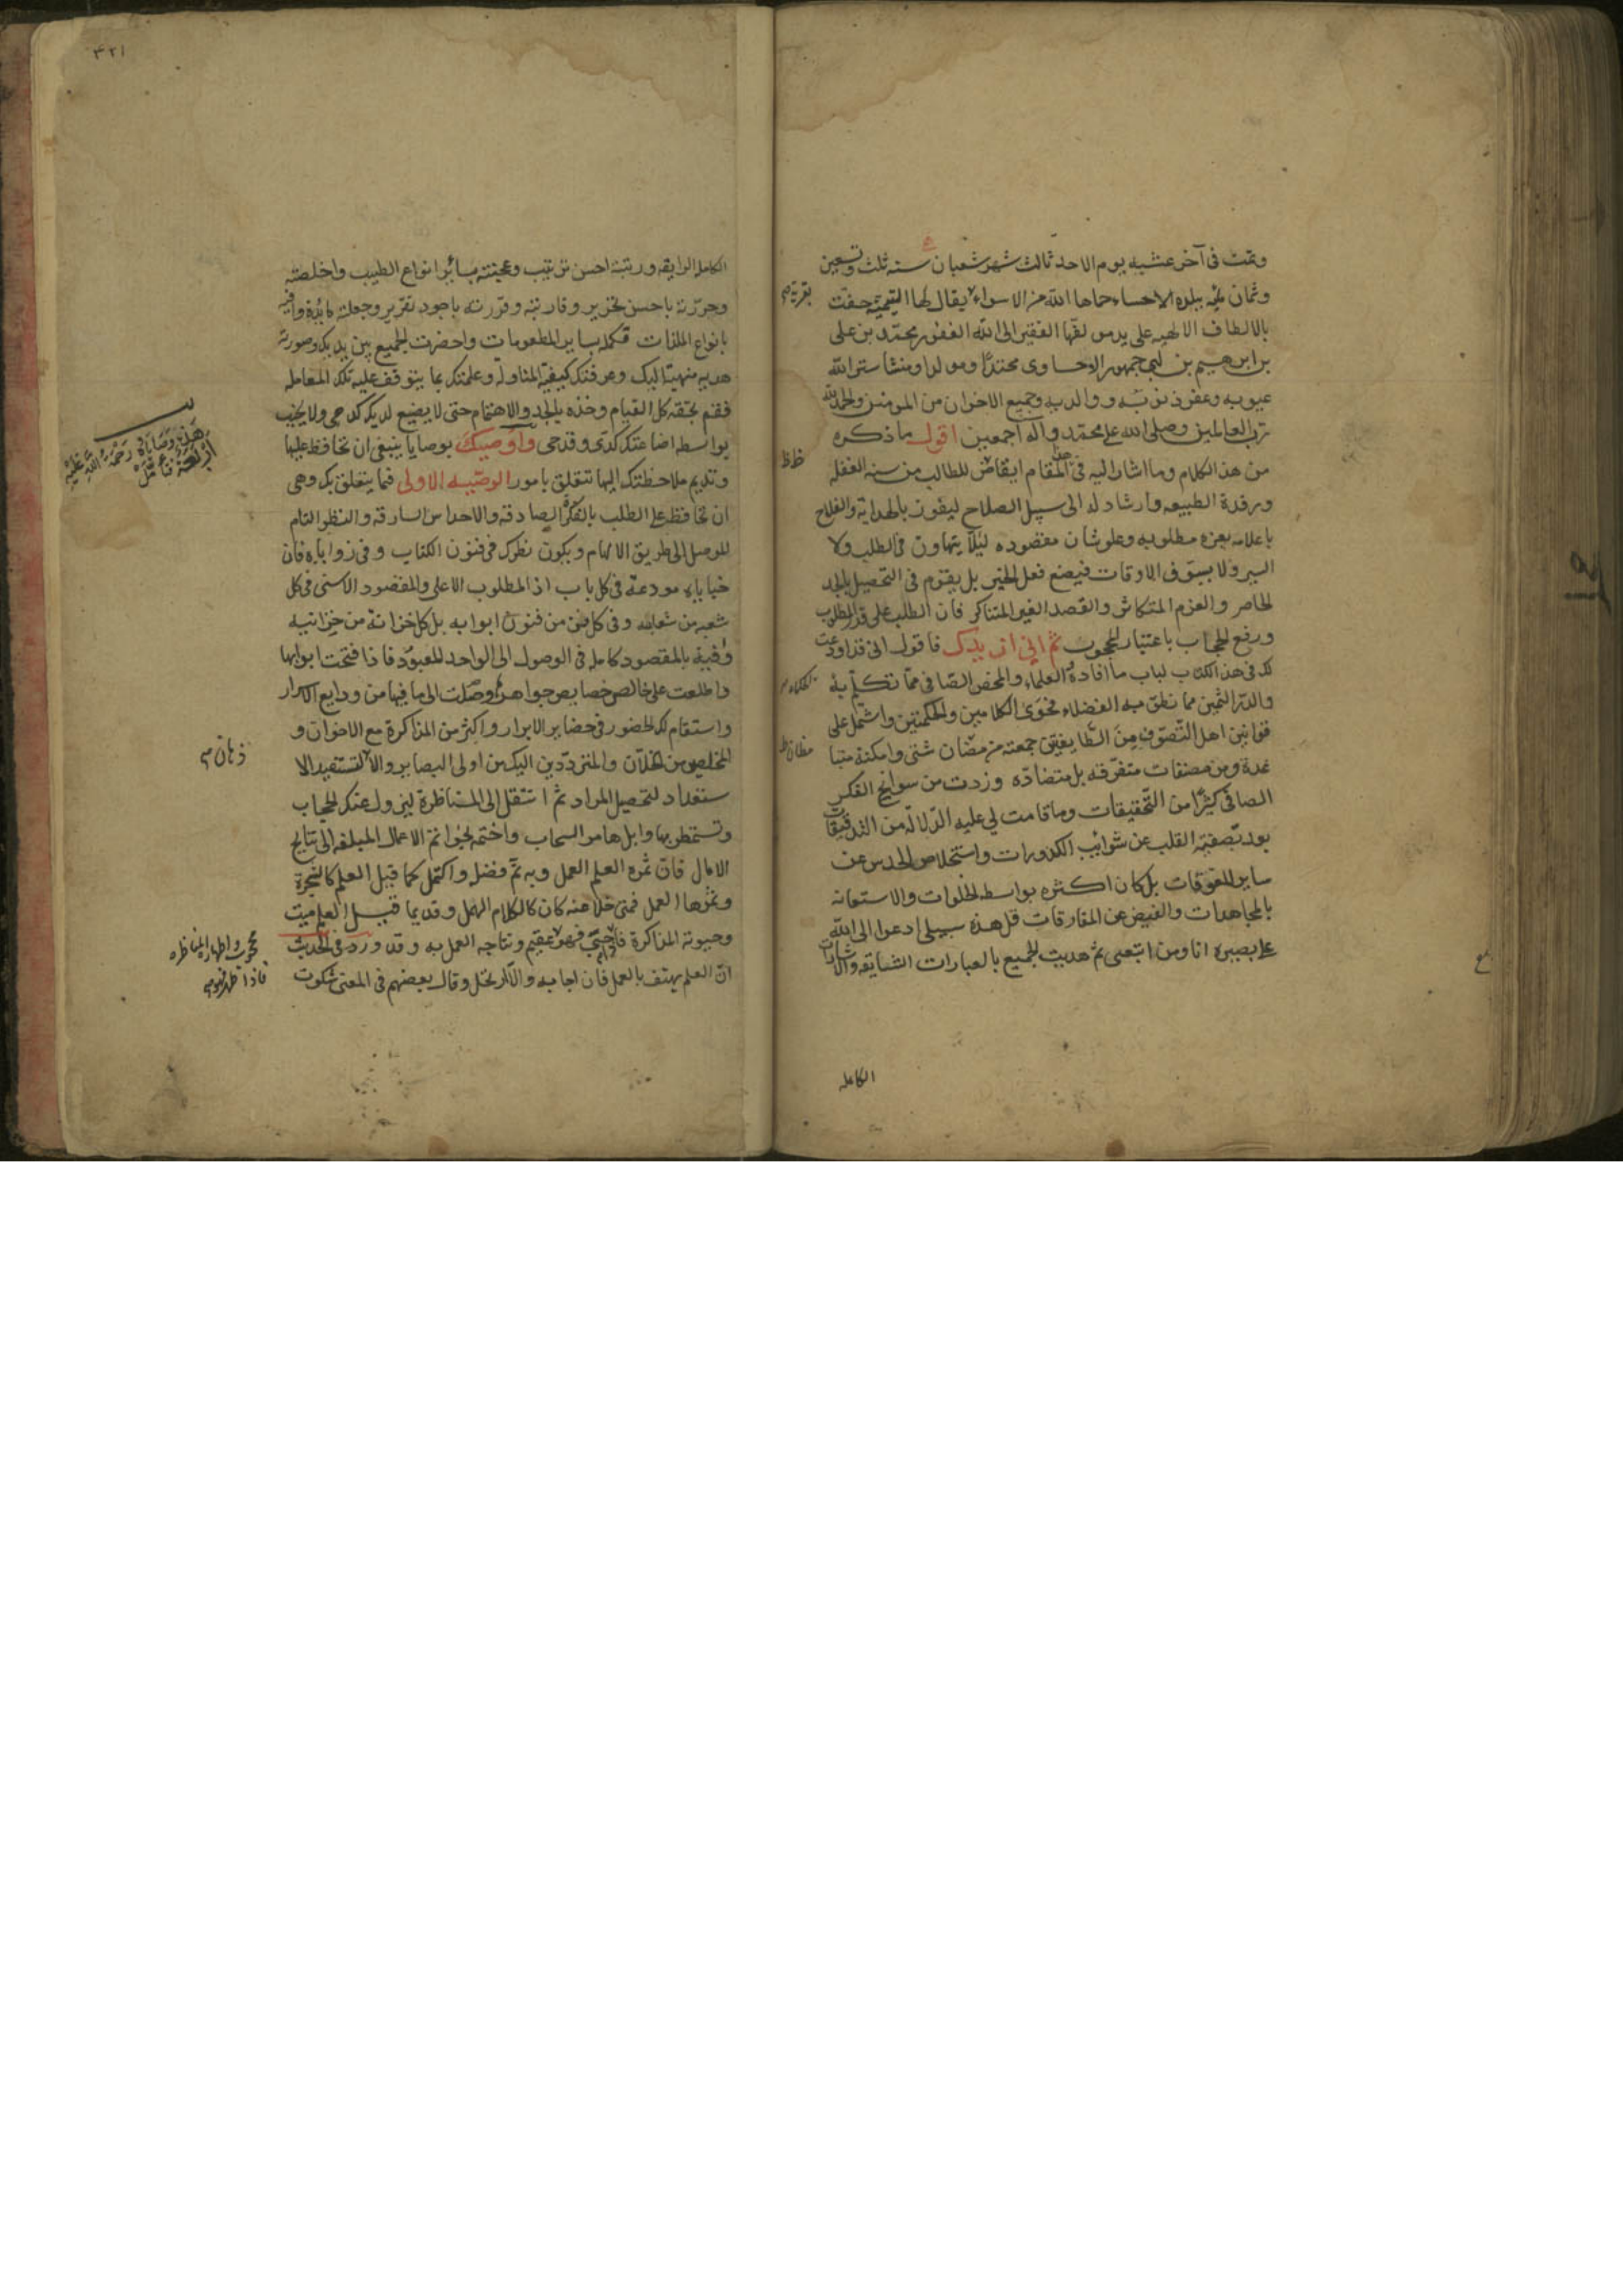 وتمت فى آخر عشيه يوم الاحد ثالث شهر شعبان سنه ثلث وتسعين
وثمان مائه ببلده الاحساء حماها الله من الاسواء يقال لها التيمية حفت
بقرية
بالالطاف الالهيه على يد مولفها الفقير الى الله الغفور محمد بن على
بن ابرهيم بن ابى جمهور الاحساوى محتدًا ومولدا ومنشأ ستر الله
عيوبه وغفر ذنوبه ووالديه وجميع الاخوان من المومنين والحمد لله
رب العالمين وصلى الله على محمد وآله اجمعين اقول ما ذكره
من هذا الكلام وما اشار اليه فى هذا المقام ايقاض للطالب من سنه الغفله
ظ ظ
ورقدة الطبيعه وارشاد له الى سبيل الصلاح ليفوز بالهداية والفلاح
باعلامه بعزه مطلوبه وعلو شان مقصوده ليلا يتهاون فى الطلب ولا
السير ولا يسوف الاوقات فيضع فعل الخير بل يقوم فى التحصيل بالجد
الحاضر والعزم المتكاش والقصد الغير المتناكر فان الطلب على قدر المطلوب
ورفع الحجاب باعتبار المحجوب ثم انى ازيدك فاقول انى قد اودعت
لك فى هذا الكتاب لباب ما افاده العلماء والمحض الصافى مما تكلم به
الحكماء
والدر الثمين مما نطق به الفضلاء فحوى الكلامين والحكمتين واشتمل على
قوانين اهل التصوف من الطايفتين جمعته من مضان شتى وامكنة متبا
مظان ظ
عدة ومن مصنفات متفرقه بل متضاده وزدت من سوانح الفكر
الصافى كثيرًا من التحقيقات وما قامت لى عليه الدلاله من التدقيقات
بعد تصفية القلب عن شوائب الكدورات واستخلاص الحدس عن
ساير المعوقات بل كان اكثره بواسطه الخلوات والاستعانه
بالمجاهدات والفيض عن المفارقات قل هذه سبيلى ادعوا الى الله
على بصيره انا ومن اتبعنى ثم هديت الجميع بالعبارات الشايقه والاشارات
الكامله
٣٢١
الكامله الرايقه ورتبته احسن ترتيب وعجينته بسائر انواع الطيب واخلصته
وحررته باحسن تحرير وقاربته وقررته باجود تقرير وجعلته مائدة وافيه
بانواع الملذات مكمله بساير المطعومات واحضرت الجميع بين يديك وصورته
هديه منهية اليك وعرفتك كيفية المناوله وعلمتك بما يتوقف عليه تلك المعامله
فقم بحقه كل القيام وخذه بالجد والاهتمام حتى لا يضيع لديك كدحى ولا يخيب
بواسطه اضاعتك كدى وقدحى واوصيك بوصايا ينبغى ان تحافظ عليها
وتديم ملاحظتك اليها تتعلق بامور الوصيه الاولى فما يتعلق بك وهى
ان تحافظ على الطلب بالفكرة الصادقه والاحداس السارقه والنظر التام
الموصل الى طريق الالهام ويكون نظرك فى فنون الكتاب وفى زواياه فان
خباياه مودعة فى كل باب اذ المطلوب الاعلى والمقصود الاسنى فى كل
شعبه من شعابه وفى كل فن من فنون ابوابه بل كل خزانة من خزانتيه
وفيه بالمقصود كامله فى الوصول الى الواحد المعبود فاذا فتحت ابوابها
واطلعت على خالص خصايص جواهر ووصلت الى ما فيها من ودايع الاسرار
واستقام لك الحضور فى حضاير الابرار واكثر من المذاكرة مع الاخوان و
المخلصين من الخلان والمترددين اليك من اولى البصاير والا لتستفيد الا
ذهان
ستعداد لتحصيل المراد ثم انتقل الى المناظرة ليزول عنك الحجاب
وتستمطر بها وابل هامر السحاب واختمه بخواتم الاعمال المبلغه الى نتايج
الامال فان ثمره العلم العمل وبه تم فضله واكتمل كما قيل العلم كالشجرة
وثمرها العمل فمتى خلا عنه كان كالكلام المهمل وقديما قيل العلم ميت
وحيوته المذاكرة فاذا حيى فهو عقيم ونتاجه العمل به وقد ورد فى الحديث
ان العلم يهتف بالعمل فان اجابه والا ارتحل وقال بعضهم فى المعنى شكوت
هذه وصاياه رحمة الله عليه